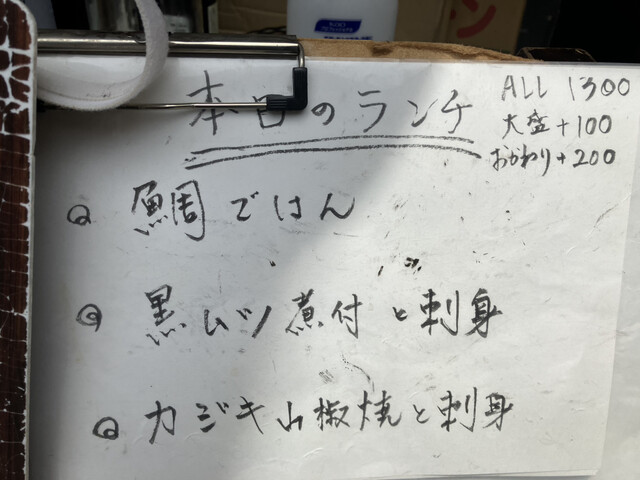 本日のランチ
ALL 1300
大盛+100
おかわり+200
鯛ごはん
黒ムツ煮付と刺身
カジキ山椒焼と刺身